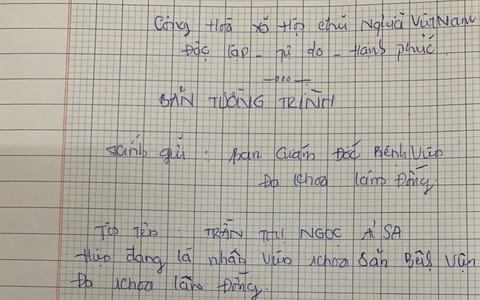 Cộng Hoà xã Hội chủ Nghĩa Việt Nam
Độc lập - Tự do - Hạnh phúc
BẢN TƯỜNG TRÌNH
Kính gửi: Ban Giám Đốc Bệnh Viện
Đa khoa Lâm Đồng.
Tôi tên: TRẦN THỊ NGỌC Á SA
Hiện đang là nhân viên khoa Sản Bệnh Viện
Đa khoa Lâm Đồng.